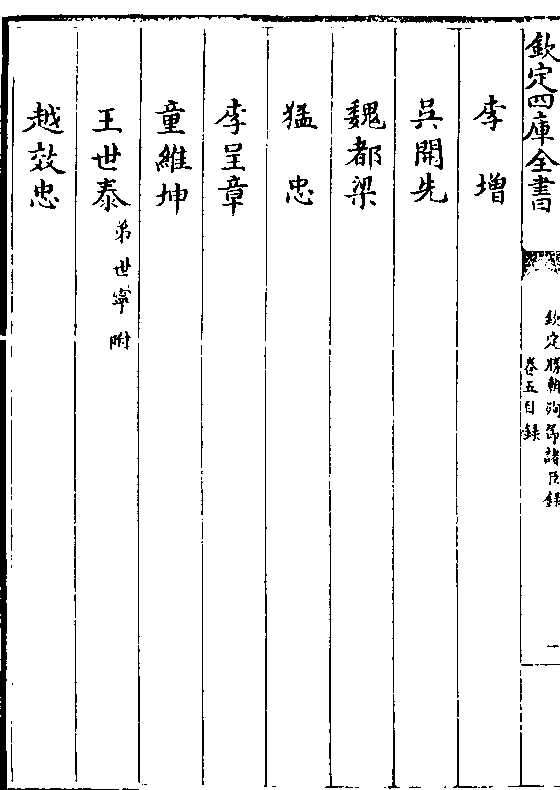 欽定四庫全書
欽定勝朝殉節諸臣錄
卷五目錄
二
李增
吳開先
魏都梁
猛忠
李呈章
童維坤
王世泰弟世寧附
越效忠